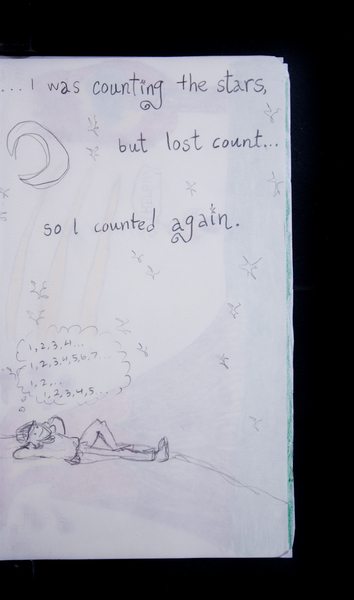 ...I was counting the stars,
but lost count...
so I counted again.
1,2,3,4...
1,2,3,4,5,6,7...
1,2...
1,2,3,4,5...